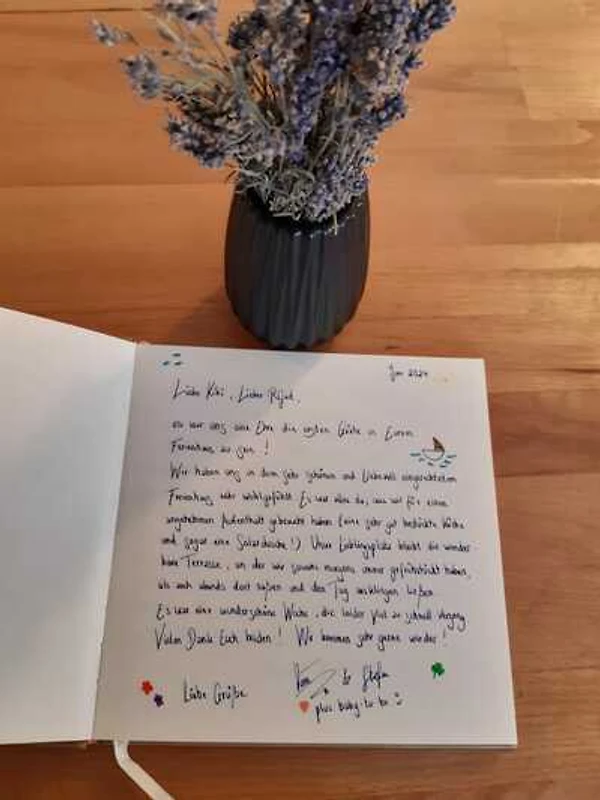 Jun 2024
Liebe Kiki, Lieber
es war uns eine Ehre die ersten Gäste in Eurem
Ferienhaus zu sein!
Wir haben uns in dem sehr schönen und liebevoll eingerichteten
Ferienhaus sehr wohlgefühlt. Es war alles da, was wir für einen
angenehmen Aufenthalt gebraucht haben (eine sehr gut bestückte Küche
und sogar eine Solardusche!) Unser Lieblingsplatz bleibt die wunder-
bare Terrasse, an der wir sowohl morgens immer gefrühstückt haben,
als auch abends dort saßen und den Tag ausklingen ließen.
Es war eine wunderschöne Woche, die leider viel zu schnell verging.
Vielen Dank Euch beiden! Wir kommen sehr gerne wieder!
Liebe Grüße
& Stefan
plus baby-to-be